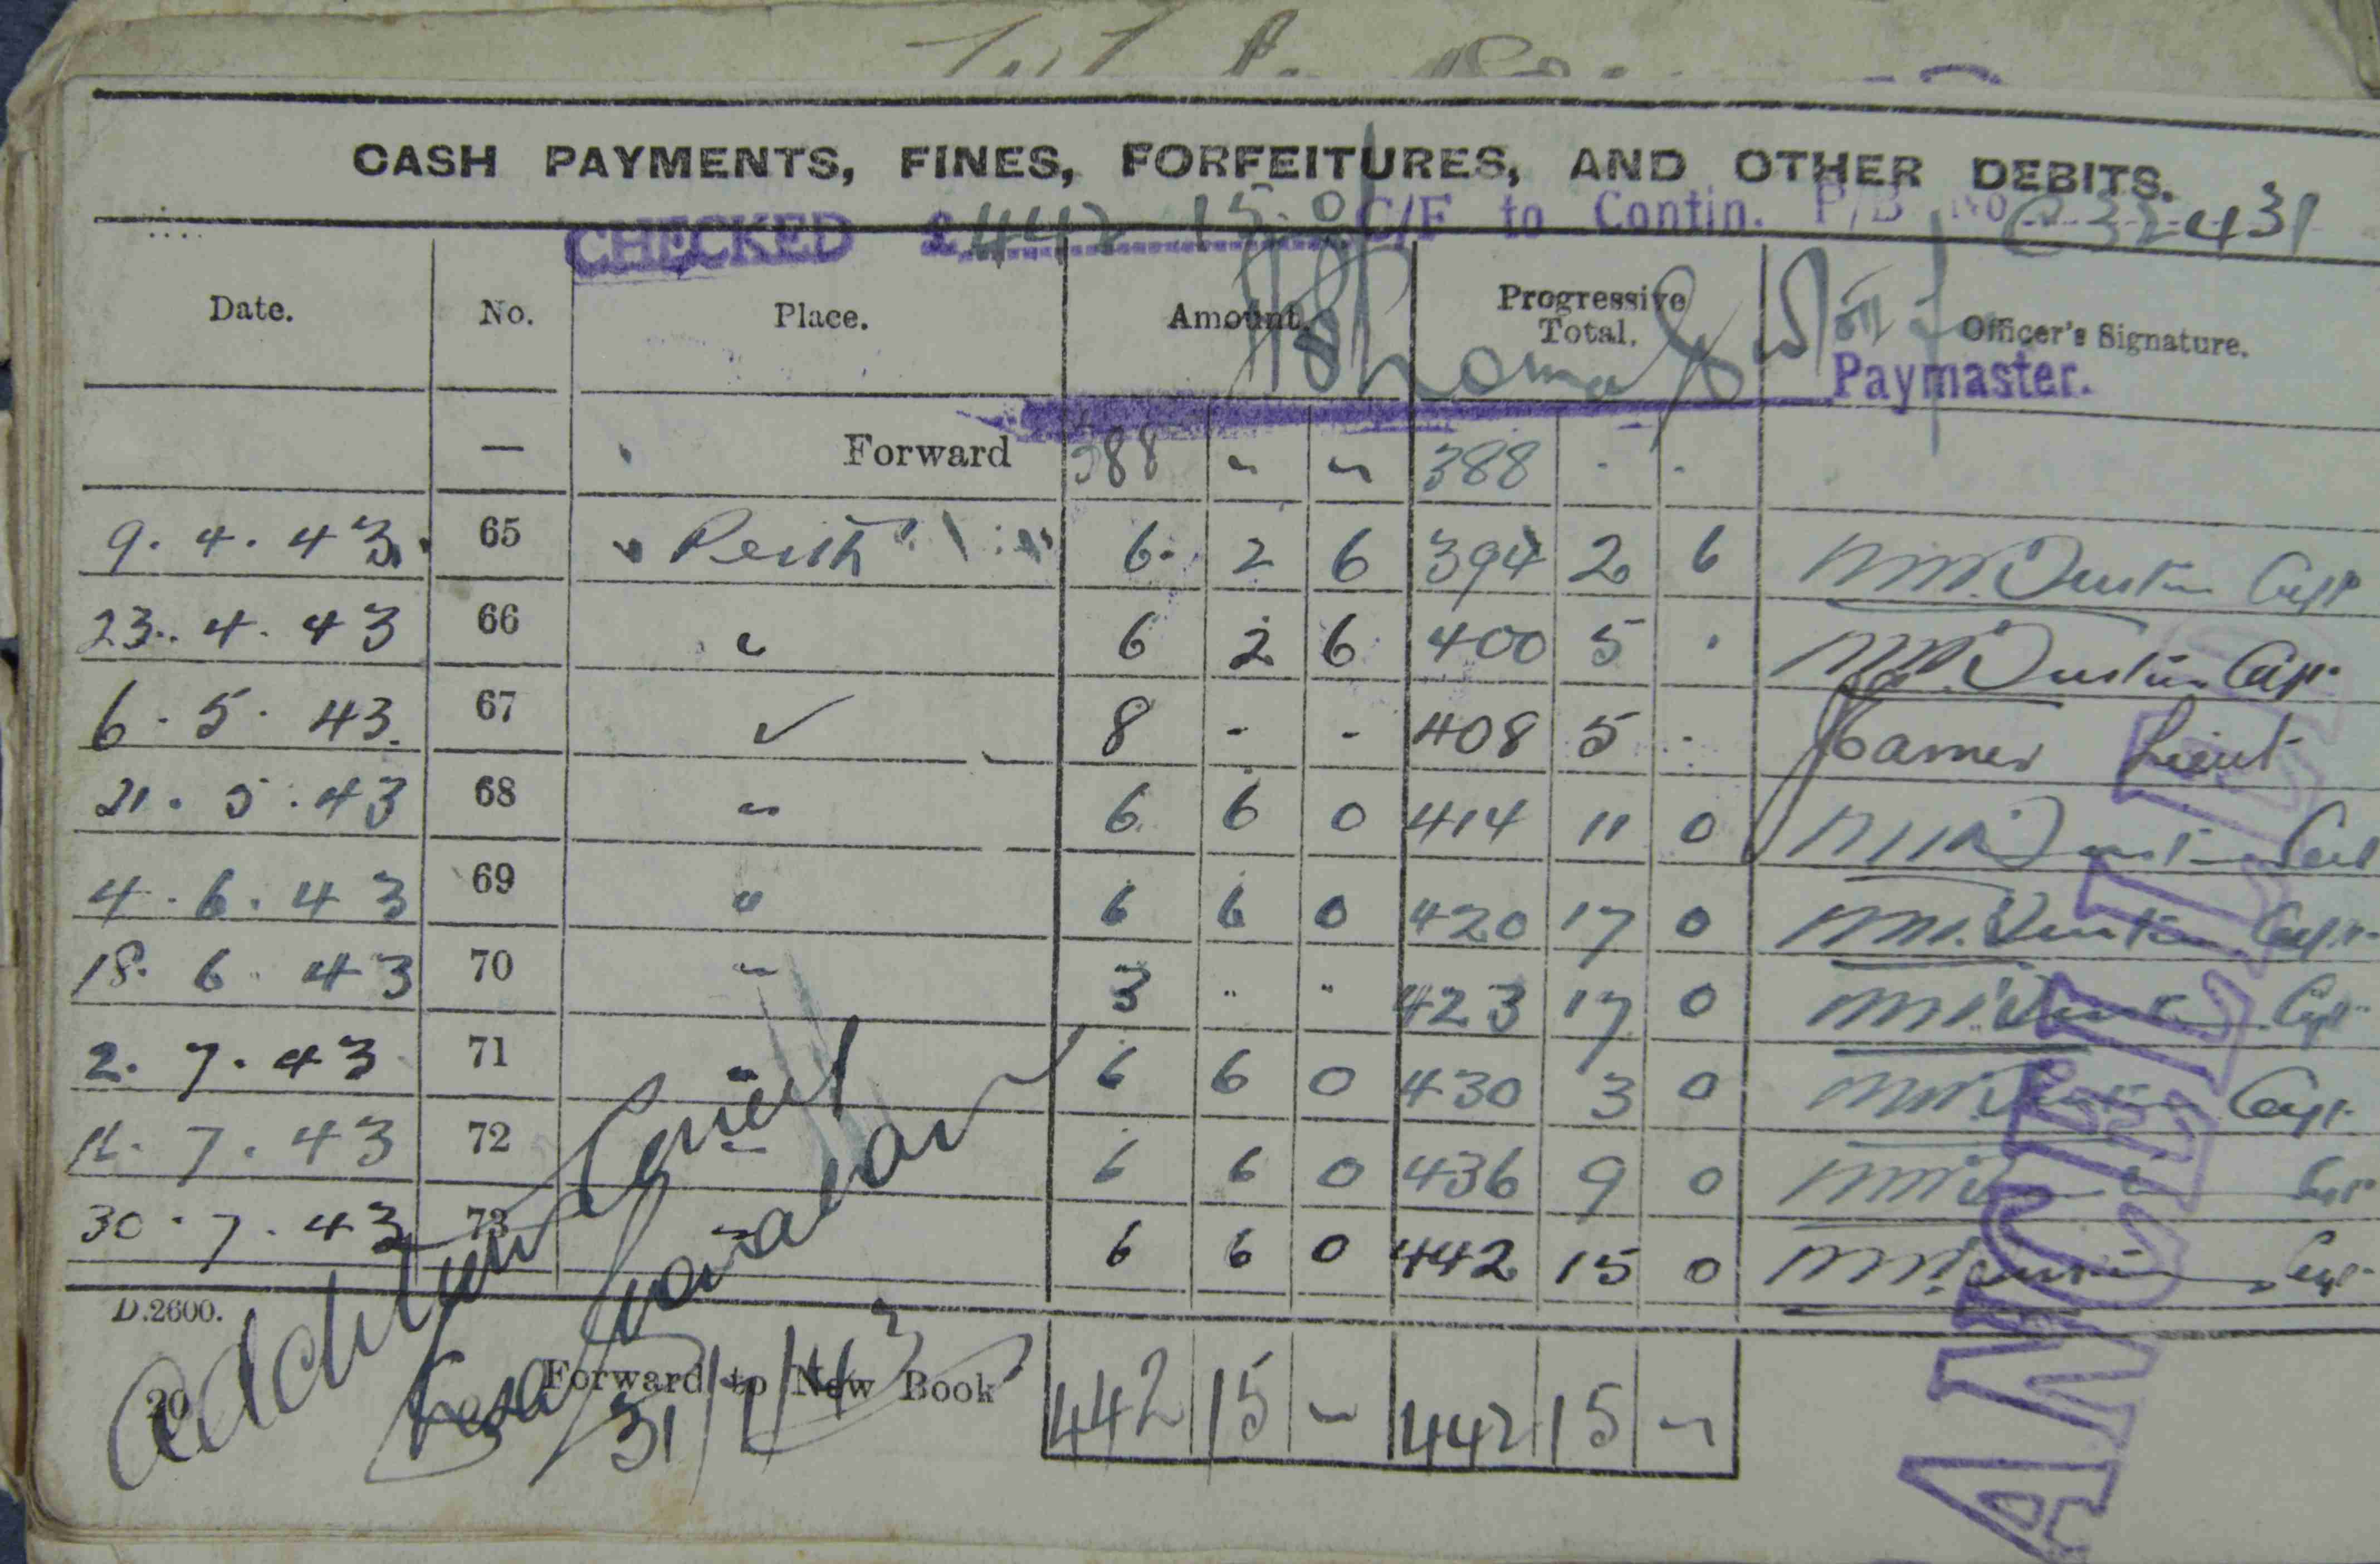 CASH PAYMENTS, FINES, FORFEITURES, AND OTHER DEBITS.
CHECKED £ 442 15. 0 C/F to Contin. P/B No C 32431
Date. No. Place. Amount. Progressive Total. Officer's Signature.
Paymaster.
— Forward 388 " " 388 . .
9. 4. 43. 65 Perth 6. 2 6 394 2 6 Capt
23. 4. 43 66 " 6 2 6 400 5 . Capt.
6. 5. 43. 67 " 8 - - 408 5 - Lieut
21. 5. 43 68 " 6 6 0 414 11 0 Capt
4. 6. 43 69 " 6 6 0 420 17 0 Capt.
18. 6. 43 70 " 3 " " 423 17 0 Capt.
2. 7. 43 71 6 6 0 430 3 0 Capt.
16. 7. 43 72 " 6 6 0 436 9 0 Capt.
30. 7. 43 73 " 6 6 0 442 15 0 Capt.
D.2600.
20
Forward to New Book 442 15 ~ 442 15 ~
31/7/43
CANCELLED